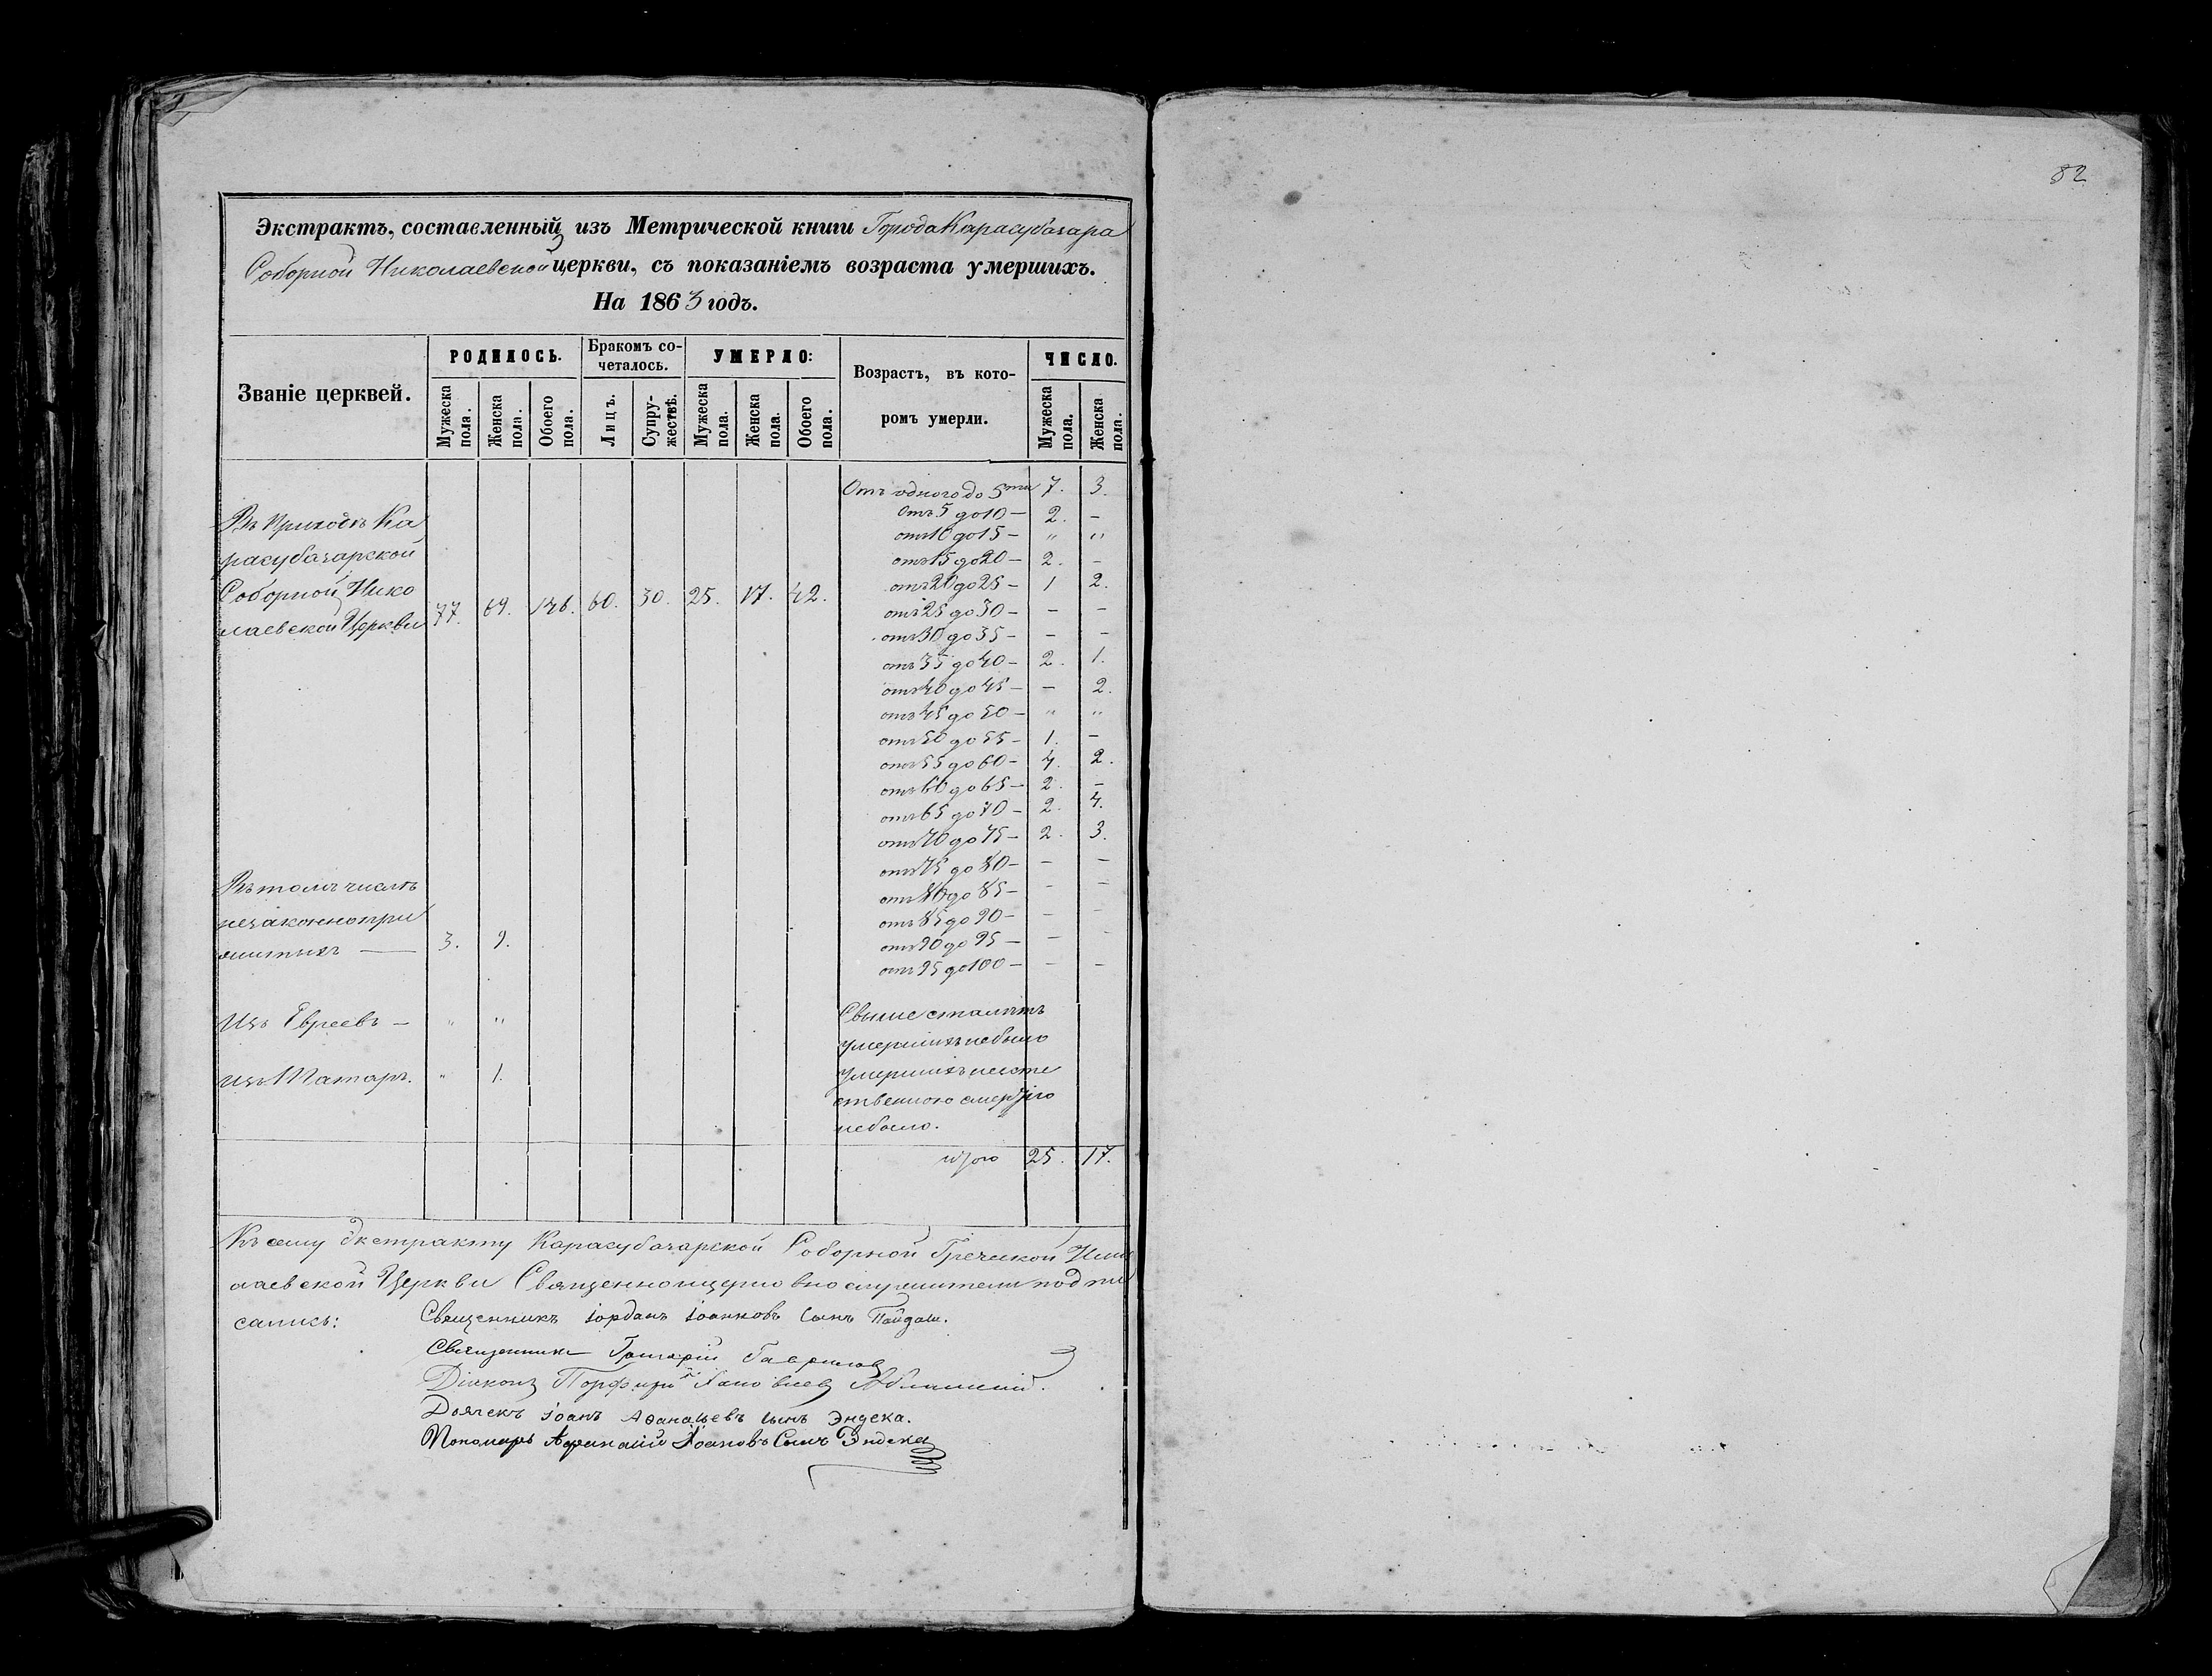 82
Экстрактъ, составленный изъ Метрической книги Города Карасубазара
Соборной Николаевской церкви, съ показаніемъ возраста умершихъ.
На 1863 годъ.
Званіе церквей.
РОДИЛОСЬ.
Бракомъ со-
четалось.
УМЕРЛО:
Возрастъ, въ кото-
ромъ умерли.
ЧИСЛО.
Мужеска пола.
Женска пола.
Обоего пола.
Лицъ.
Супру-
жествъ.
Мужеска пола.
Женска пола.
Обоего пола.
Мужеска пола.
Женска пола.
Въ Приходѣ Ка
расубазарской
Соборной Нико
лаевской Церкви 77. 69. 146. 60. 30. 25. 17. 42.
Отъ одного до 5ти 7. 3.
отъ 5 до 10 – 2. –
отъ 10 до 15 – " "
отъ 15 до 20 – 2. –
отъ 20 до 25 – 1 2.
отъ 25 до 30 – – –
отъ 30 до 35 – – –
отъ 35 до 40 – 2. 1.
отъ 40 до 45 – – 2.
отъ 45 до 50 – " "
отъ 50 до 55 – 1. –
отъ 55 до 60 – 4. 2.
отъ 60 до 65 – 2. –
отъ 65 до 70 – 2. 4.
отъ 70 до 75 – 2. 3.
отъ 75 до 80 – – –
отъ 80 до 85 – – –
отъ 85 до 90 – – –
отъ 90 до 95 – – –
отъ 95 до 100 – – –
Въ томъ числѣ
незаконнопри
житыхъ — 3. 9.
Изъ Евреевъ – " "
Изъ Татаръ. " 1.
Свыше ста лѣтъ
умершихъ небыло
Умершихъ неесте
ственною смертію
небыло.
Итого 25. 17.
Къ сему Экстракту Карасубазарской Соборной Греческой Нико
лаевской Церкви Священноицерковнослужители подпи
сались:
Священникъ Іорданъ Іоанновъ Сынъ Пайдаш.
Священникъ Григорій Гавриловъ
Діаконъ Порфирій
Дьячекъ Іоанъ Аѳанасьевъ Сынъ Эндека.
Пономарь Афанасій Іоановъ Сынъ Эндека